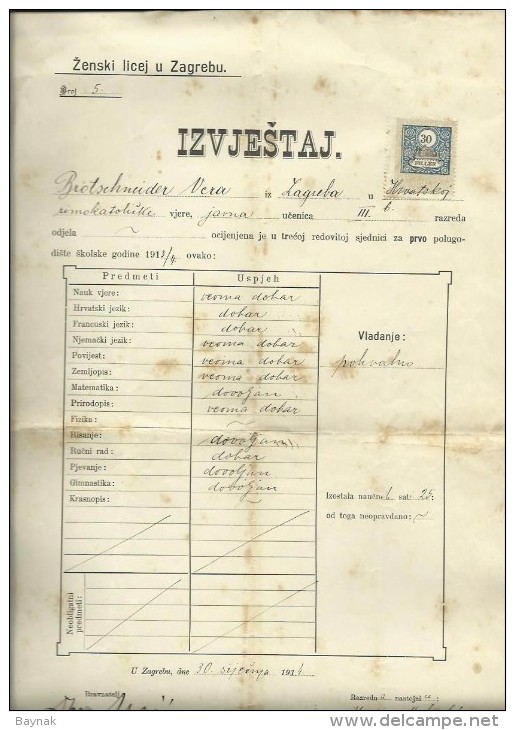 Ženski licej u Zagrebu.
Broj 5.
30
FILIRA
IZVJEŠTAJ.
Brotschneider Vera iz Zagreba u Hrvatskoj
rimokatoličke vjere, javna učenica III. b. razreda
odjela ~ ocijenjena je u trećoj redovitoj sjednici za prvo polugo-
dište školske godine 1913/4. ovako:
Predmeti Uspjeh
Nauk vjere: veoma dobar
Hrvatski jezik: dobar
Francuski jezik: dobar
Njemački jezik: veoma dobar
Povijest: veoma dobar
Zemljopis: veoma dobar
Matematika: dovoljan
Prirodopis: veoma dobar
Fizika: ~
Risanje: dovoljan
Ručni rad: dobar
Pjevanje: dovoljan
Gimnastika: dovoljan
Krasnopis: ~
Neobligatni predmeti:
Vladanje:
pohvalno
Izostala naučnih sati: 25.
od toga neopravdano: ~
U Zagrebu, dne 30. siječnja 1914.
Ravnatelj:
Razredni nastojnik:
Baynak
www.delcampe.net